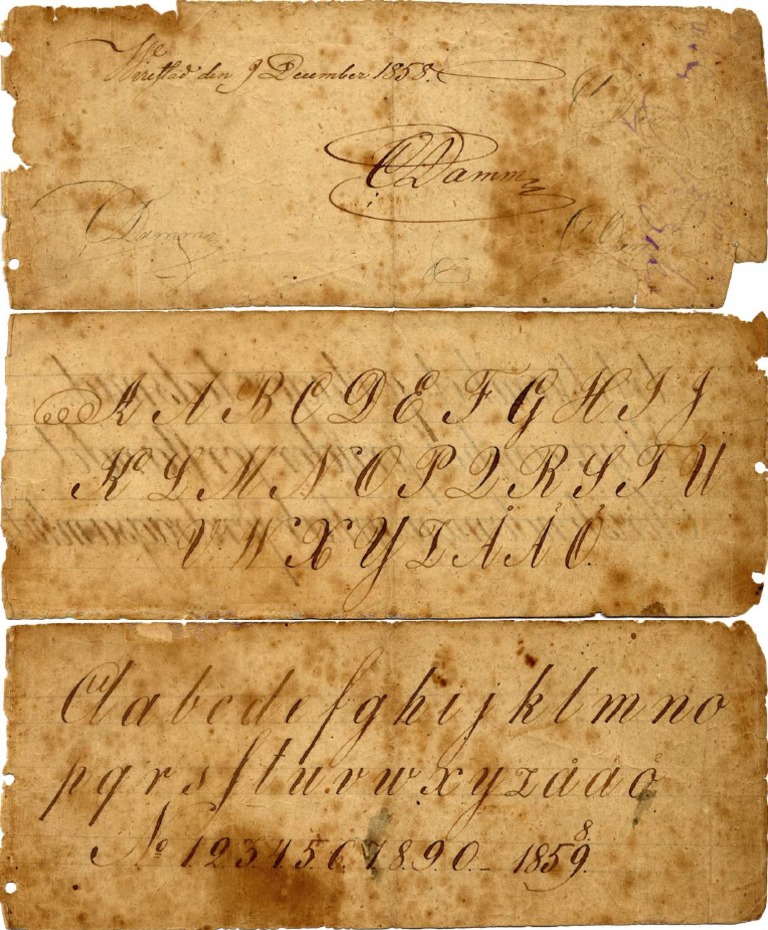 den 9 December 1858.
CDamm
CDamm
A A B C D E F G H I J
K L M N O P Q R S T U
V W X Y Z Å Ä Ö
Aa b c d e f g h i j k l m n o
p q r s ſ t u v w x y z å ä ö
No 1 2 3 4 5. 6. 7 8. 9. 0. – 1859.
8.